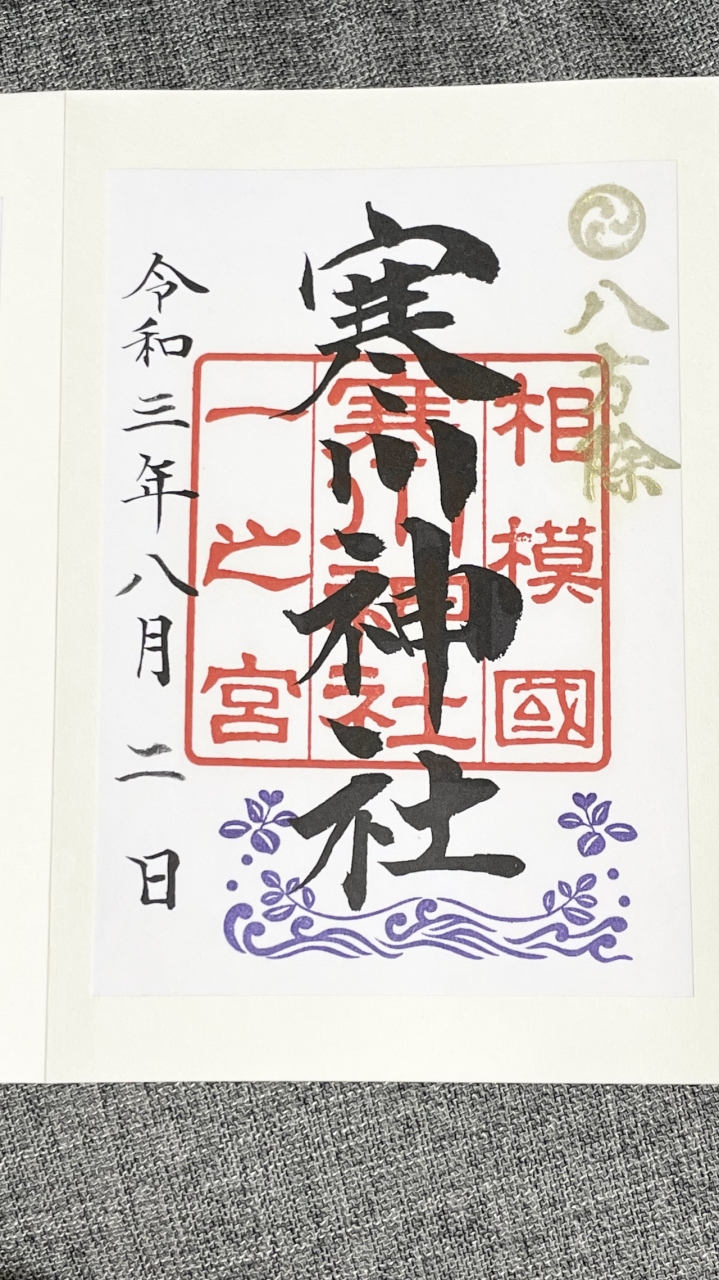 八方除
相模國
寒川神社
一之宮
寒川神社
令和三年八月二日